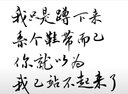 我只是蹲下来
系个鞋带而已
你就以为
我已站不起来了